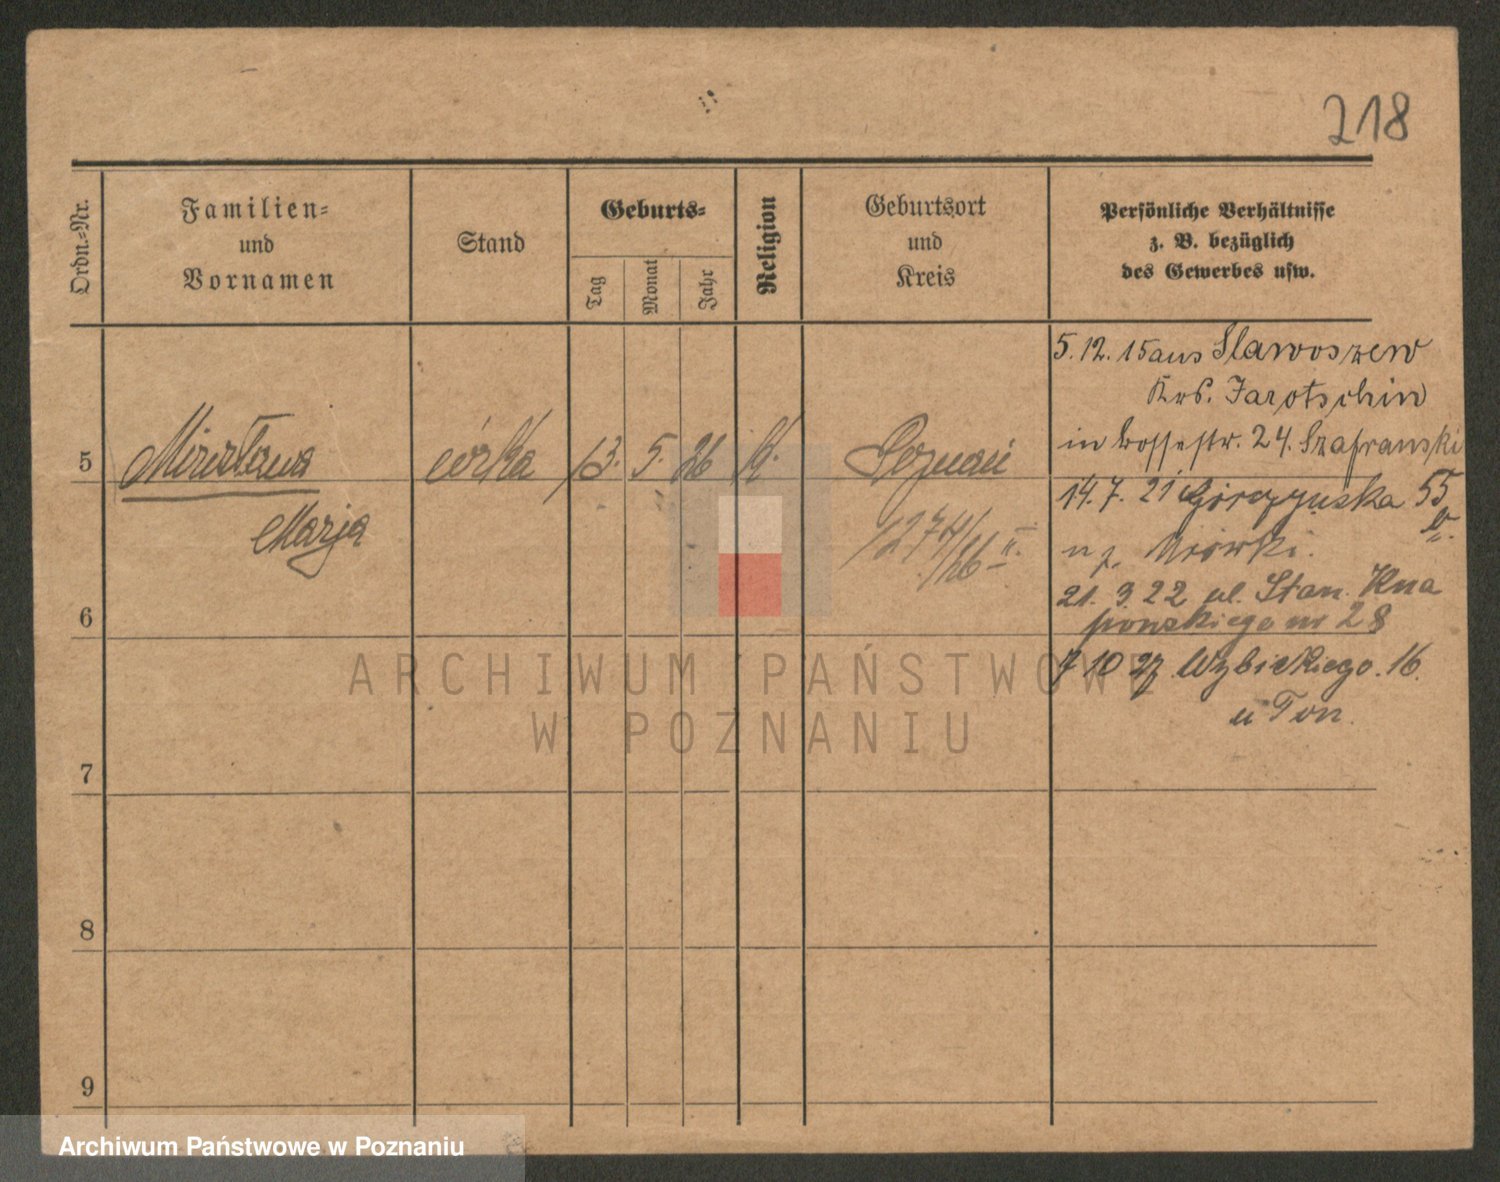 218
Ordn.-Nr.
Familien-
und
Vornamen
Stand
Geburts-
Tag
Monat
Jahr
Religion
Geburtsort
und
Kreis
Persönliche Verhältnisse
z. B. bezüglich
des Gewerbes usw.
5.12.15 aus Slawoszew
Krs. Jarotschin
in Bossestr. 24. Szafranski
5 Mirosława córka 13. 5. 26 k. Poznań
Marja
1274/26 II.
14.7. 21 Górczyńska 55
u p. Mrówki.
21. 3. 22 ul. Stan. Kna
powskiego nr 28
6
7 10 27 Wybickiego. 16.
u Ton.
7
8
9
ARCHIWUM PAŃSTWOWE
W POZNANIU
Archiwum Państwowe w Poznaniu